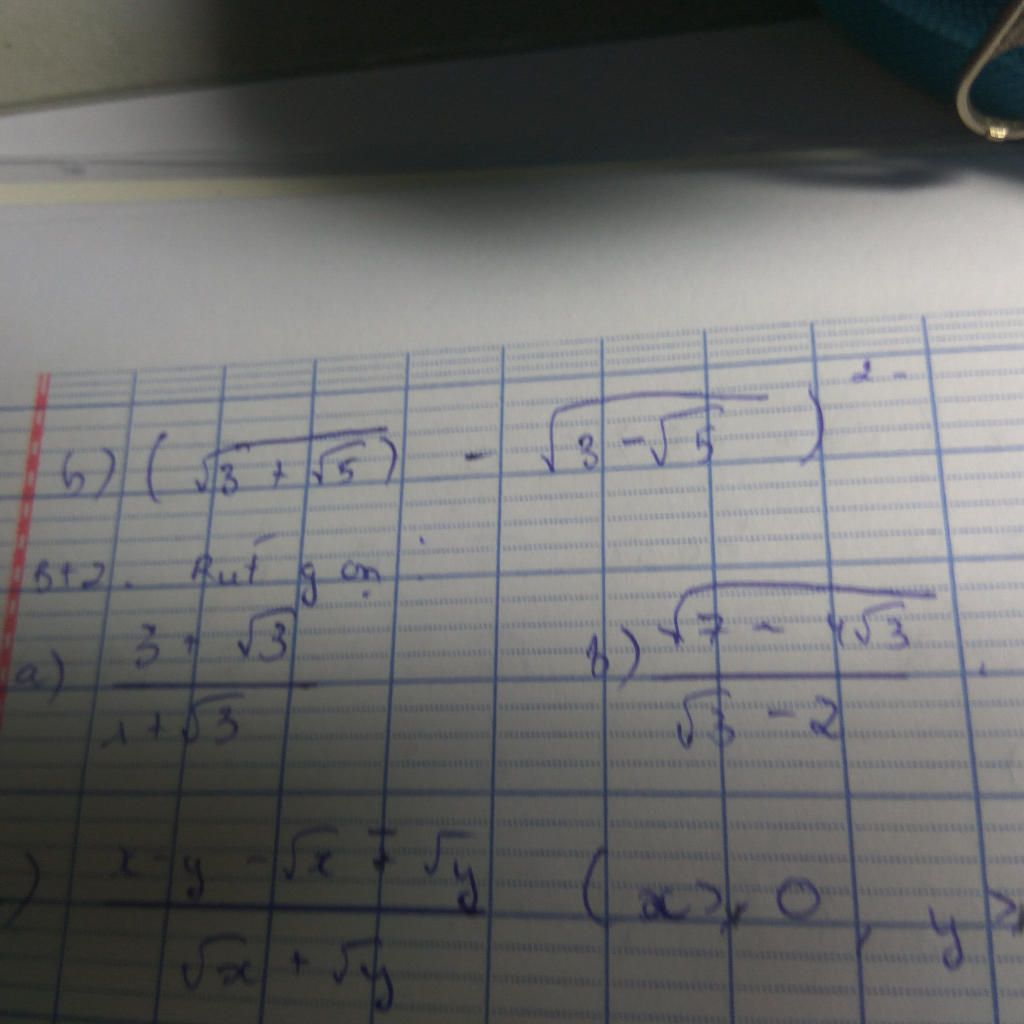 b) (√(3 + √5)) - √(3 - √5) )² -
Bt2. Rút gọn :
a) (3 + √3)/(1 + √3) b) √(7 - 4√3)/(√3 - 2) .
) (x - y - √x + √y)/(√x + √y) ( x ≥ 0 , y ≥